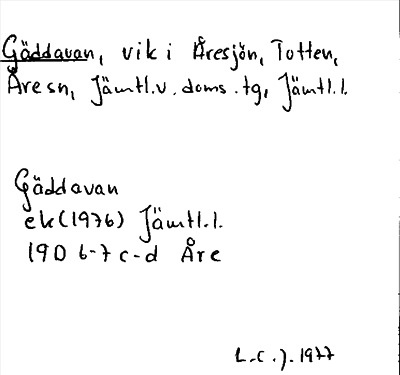 Gäddavan, vik i Åresjön, Totten,
Åresn, Jämtl.v. doms.tg, Jämtl.l.
Gäddavan
ek (1976) Jämtl.l.
19D 6-7 c-d Åre
L.C.J. 1977